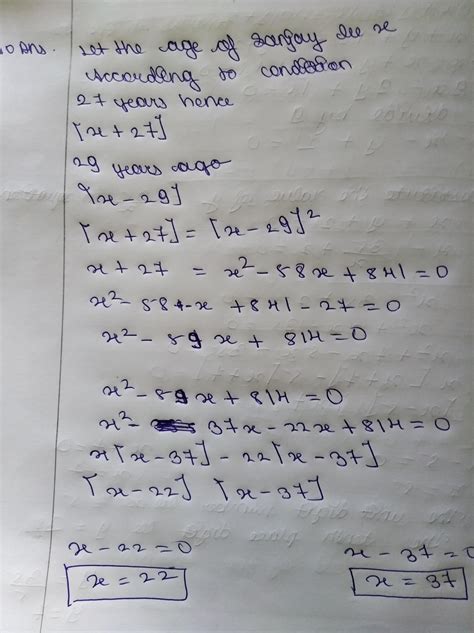 Ans. Let the age of Sanjay be x
According to condition
27 years hence
[x + 27]
29 years ago
[x - 29]
[x + 27] = [x - 29]²
x + 27 = x² - 58x + 841 = 0
x² - 58 - x + 841 - 27 = 0
x² - 59x + 814 = 0
x² - 59x + 814 = 0
x² - 37x - 22x + 814 = 0
x[x - 37] - 22[x - 37]
[x - 22] [x - 37]
x - 22 = 0 x - 37 = 0
x = 22 x = 37